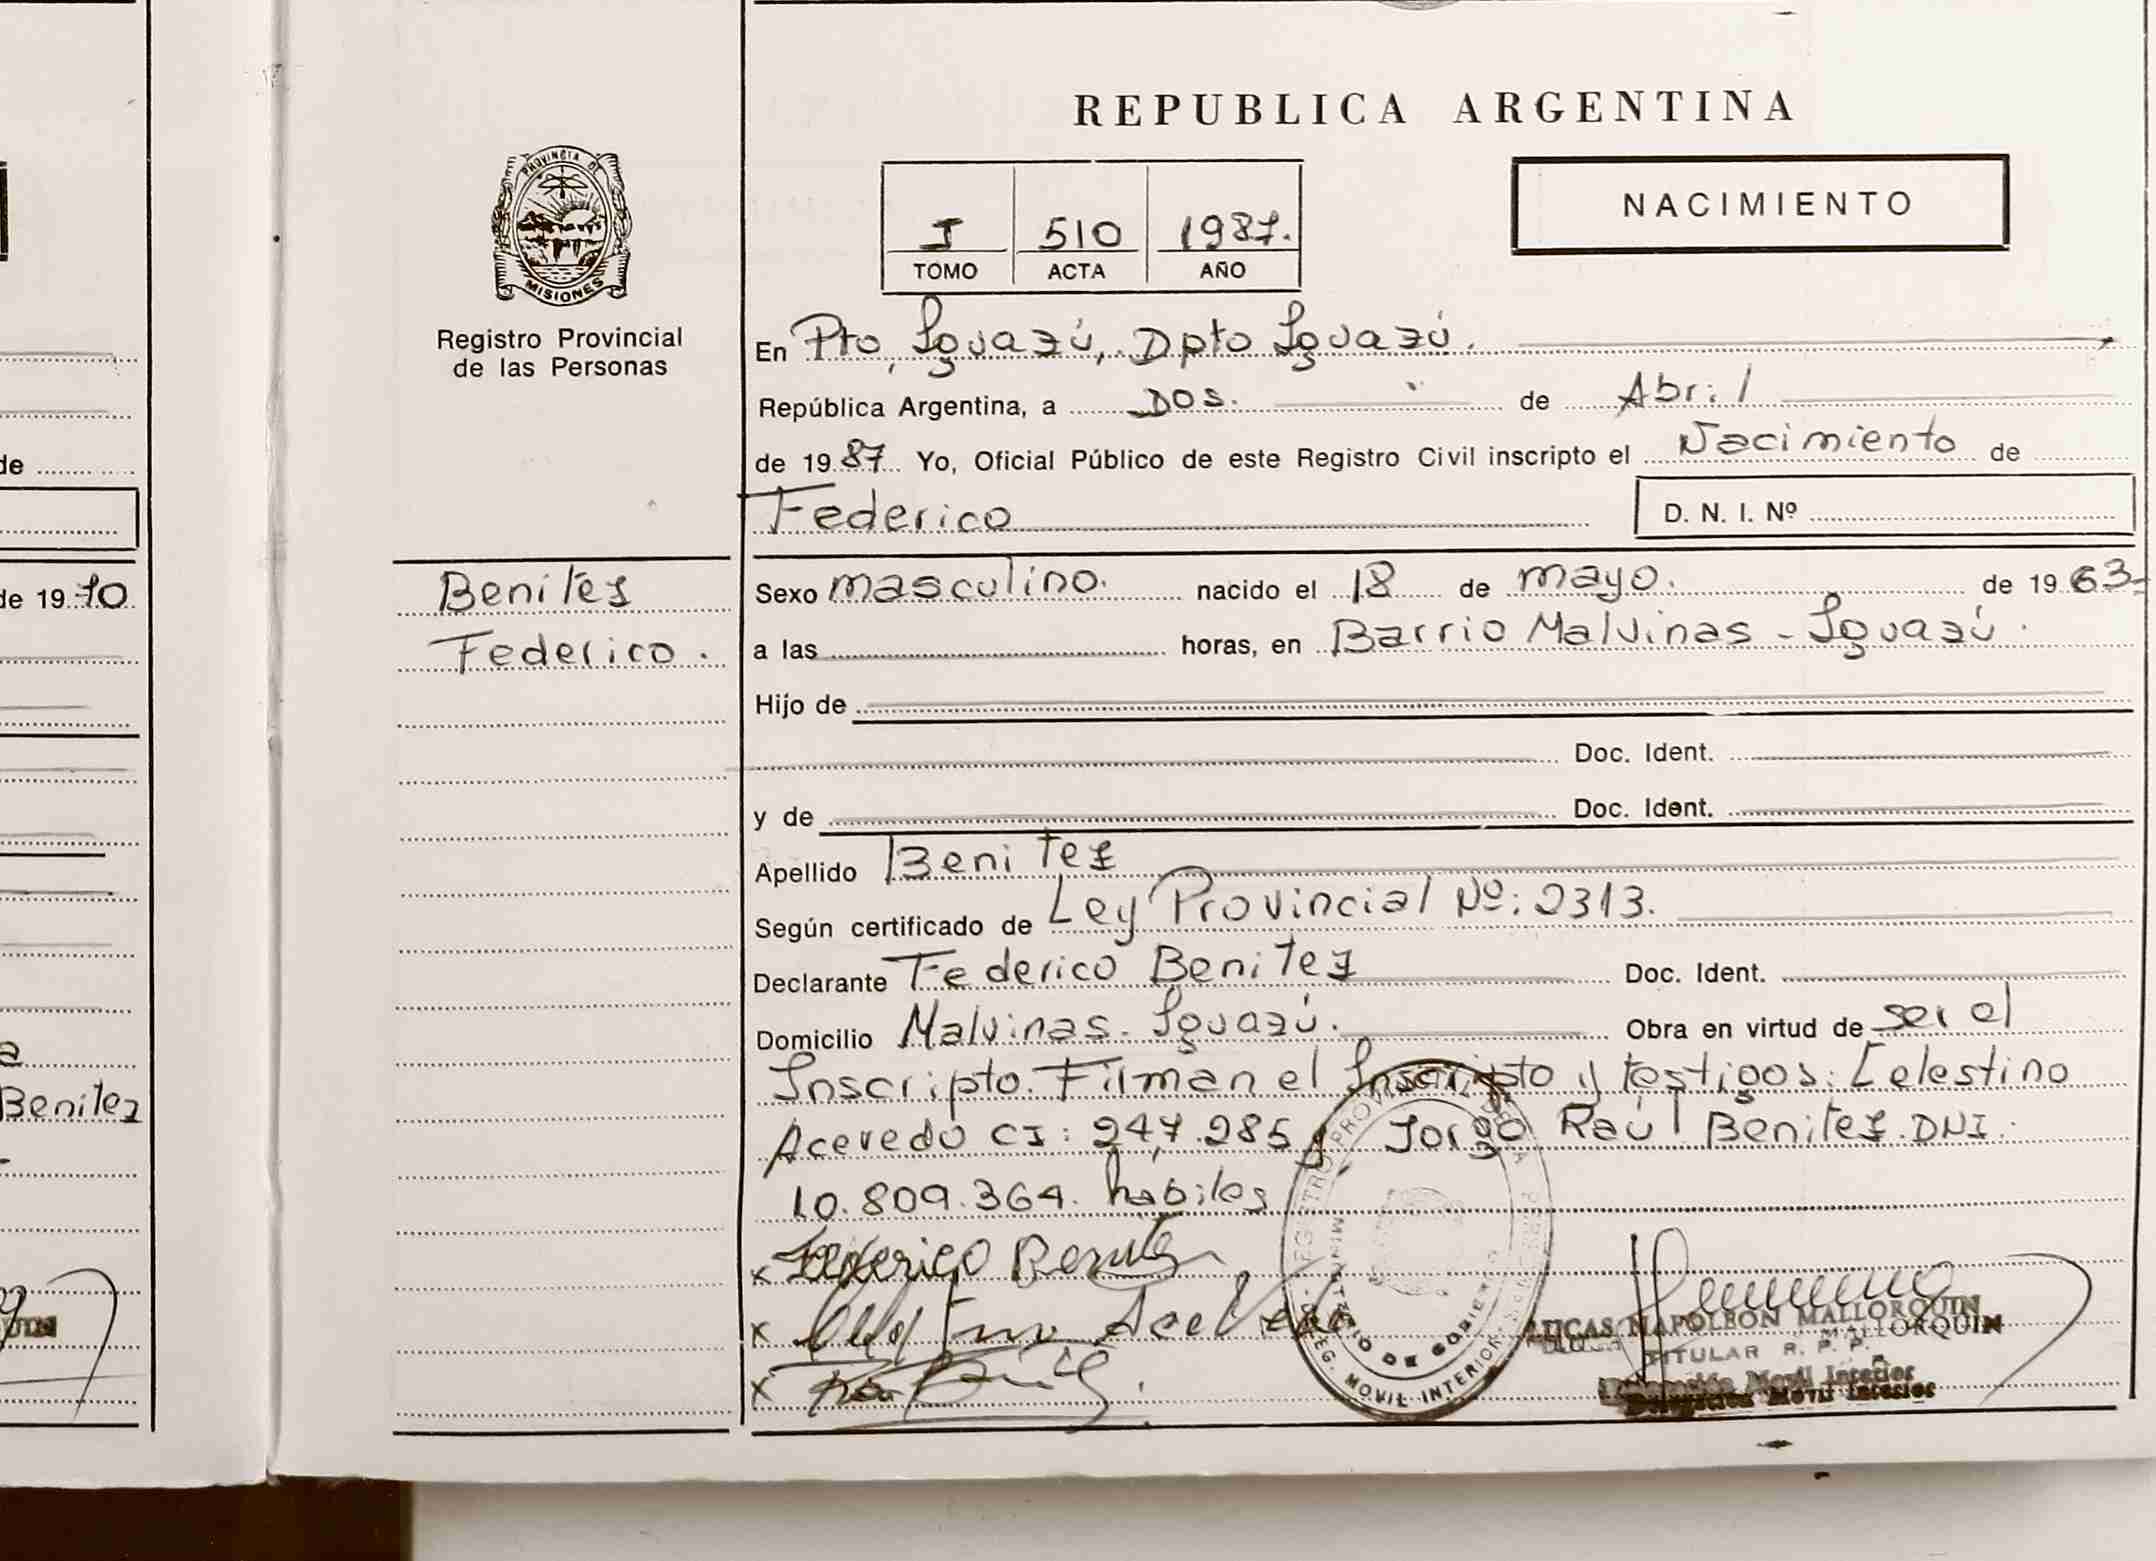 REPUBLICA ARGENTINA
PROVINCIA DE
MISIONES
Registro Provincial
de las Personas
I 510 1987.
TOMO ACTA AÑO
NACIMIENTO
En Pto, Iguazú, Dpto Iguazú.
República Argentina, a Dos. de Abril
de 1987 Yo, Oficial Público de este Registro Civil inscripto el Nacimiento de
Federico D. N. I. Nº
Benitez
Federico.
Sexo masculino. nacido el 18 de mayo. de 1963-
a las horas, en Barrio Malvinas - Iguazú.
Hijo de
Doc. Ident.
y de Doc. Ident.
Apellido Benitez
Según certificado de Ley Provincial Nº: 2313.
Declarante Federico Benitez Doc. Ident.
Domicilio Malvinas. Iguazú. Obra en virtud de ser el
Inscripto. Firman el Inscripto y testigos: Celestino
Acevedo CI: 247.285 y Jorge Raúl Benitez. DNI.
10.809.364. habiles
x Federico Benitez
x Acevedo
x
MINISTERIO DE GOBIERNO
DELEG. MOVIL INTERIOR
NAPOLEON MALLORQUIN
MALLORQUIN
TITULAR R. P. P.
Delegación Movil Interior
Delegación Movil Interior
de
de 1970
a
Benitez